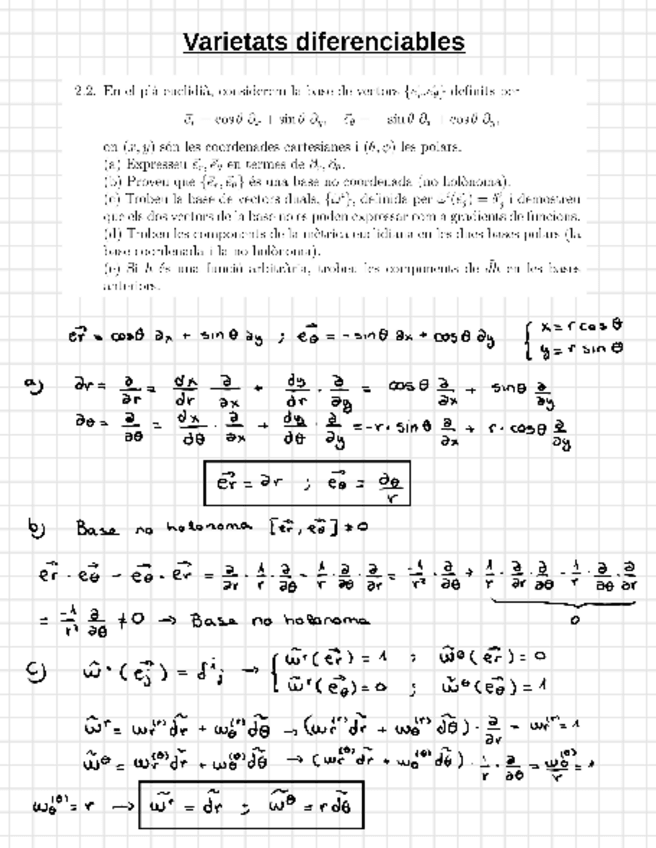 Varietats diferenciables
2.2. En el pla euclidià, considerem la base de vectors {e⃗r, e⃗θ} definits per
e⃗r = cos θ ∂x + sin θ ∂y, e⃗θ = − sin θ ∂x + cos θ ∂y,
on (x, y) són les coordenades cartesianes i (θ, φ) les polars.
(a) Expresseu e⃗r, e⃗θ en termes de ∂r, ∂θ.
(b) Proveu que {e⃗r, e⃗θ} és una base no coordenada (no holònoma).
(c) Trobeu la base de vectors duals, {ω̃ⁱ}, definida per ω̃ⁱ(e⃗j) = δⁱj i demostreu
que els dos vectors de la base no es poden expressar com a gradients de funcions.
(d) Trobeu les components de la mètrica euclidiana en les dues bases polars (la
base coordenada i la no holònoma).
(e) Si h és una funció arbitrària, trobeu les components de d̃h en les bases
anteriors.
e⃗r = cosθ ∂x + sinθ ∂y ; e⃗θ = -sinθ ∂x + cosθ ∂y { x = r cos θ
y = r sin θ
a) ∂r = ∂/∂r = dx/dr ∂/∂x + dy/dr · ∂/∂y = cosθ ∂/∂x + sinθ ∂/∂y
∂θ = ∂/∂θ = dx/dθ · ∂/∂x + dy/dθ · ∂/∂y = -r · sinθ ∂/∂x + r · cosθ ∂/∂y
e⃗r = ∂r ; e⃗θ = ∂θ/r
b) Base no holonoma [e⃗r, e⃗θ] ≠ 0
e⃗r · e⃗θ - e⃗θ · e⃗r = ∂/∂r · 1/r · ∂/∂θ - 1/r · ∂/∂θ · ∂/∂r = -1/r² · ∂/∂θ + 1/r · ∂/∂r · ∂/∂θ - 1/r · ∂/∂θ · ∂/∂r
0
= -1/r² ∂/∂θ ≠ 0 → Base no holonoma
c) ω̃ⁱ(e⃗j) = δⁱj → { ω̃ʳ(e⃗r) = 1 ; ω̃θ(e⃗r) = 0
ω̃ʳ(e⃗θ) = 0 ; ω̃θ(e⃗θ) = 1
ω̃ʳ = ωr⁽ʳ⁾ d̃r + ωθ⁽ʳ⁾ d̃θ → (ωr⁽ʳ⁾ d̃r + ωθ⁽ʳ⁾ d̃θ) · ∂/∂r = ωr⁽ʳ⁾ = 1
ω̃θ = ωr⁽θ⁾ d̃r + ωθ⁽θ⁾ d̃θ → (ωr⁽θ⁾ d̃r + ωθ⁽θ⁾ d̃θ) · 1/r · ∂/∂θ = ωθ⁽θ⁾/r = 1
ωθ⁽θ⁾ = r → ω̃ʳ = d̃r ; ω̃θ = r d̃θ